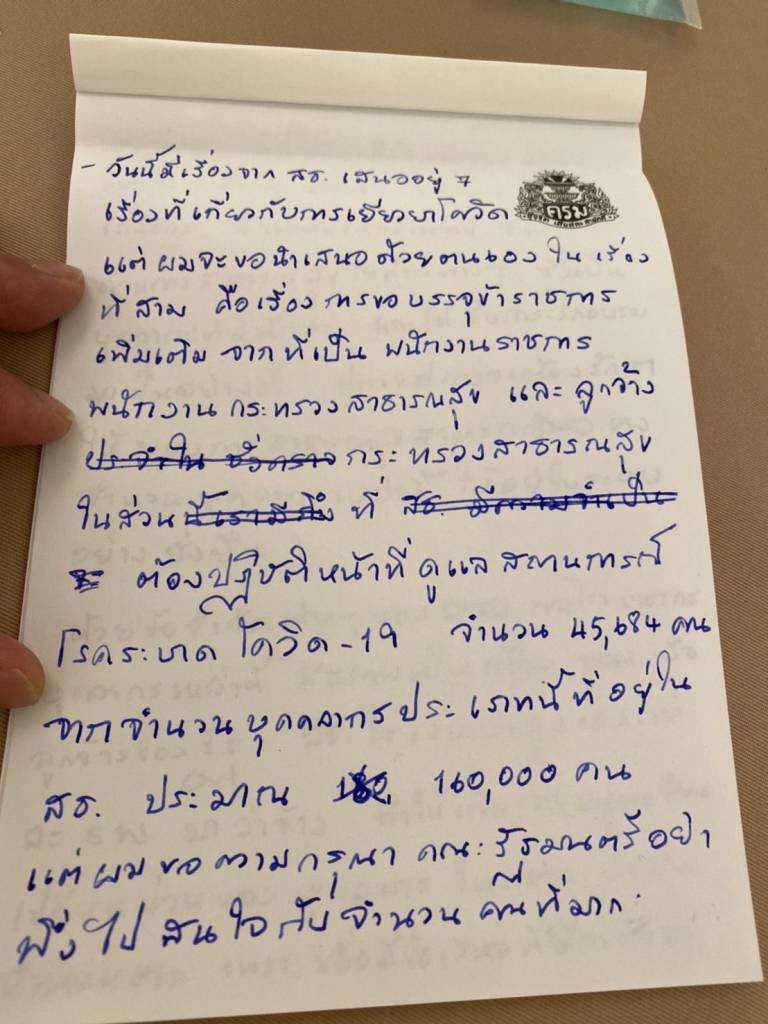 - วันนี้มีเรื่องจาก สธ. เสนออยู่ 7
เรื่องที่เกี่ยวกับการเยียวยาโควิด
ครม
แต่ผมจะขอนำเสนอด้วยตนเอง ใน เรื่อง
ที่สาม คือเรื่อง การขอบรรจุข้าราชการ
เพิ่มเติม จากที่เป็น พนักงานราชการ
พนักงานกระทรวงสาธารณสุข และ ลูกจ้าง
ประจำใน ชั่วคราว กระทรวงสาธารณสุข
ในส่วน นี้เรามีถึง ที่ สธ. มีความจำเป็น
ต้องปฏิบัติหน้าที่ ดูแล สถานการณ์
โรคระบาด โควิด-19 จำนวน 45,684 คน
จากจำนวนบุคคลากรประเภทนี้ที่อยู่ใน
สธ. ประมาณ 160,000 คน
แต่ผมขอความกรุณา คณะรัฐมนตรีอย่า
พึ่งไป สนใจกับจำนวน คนที่มาก